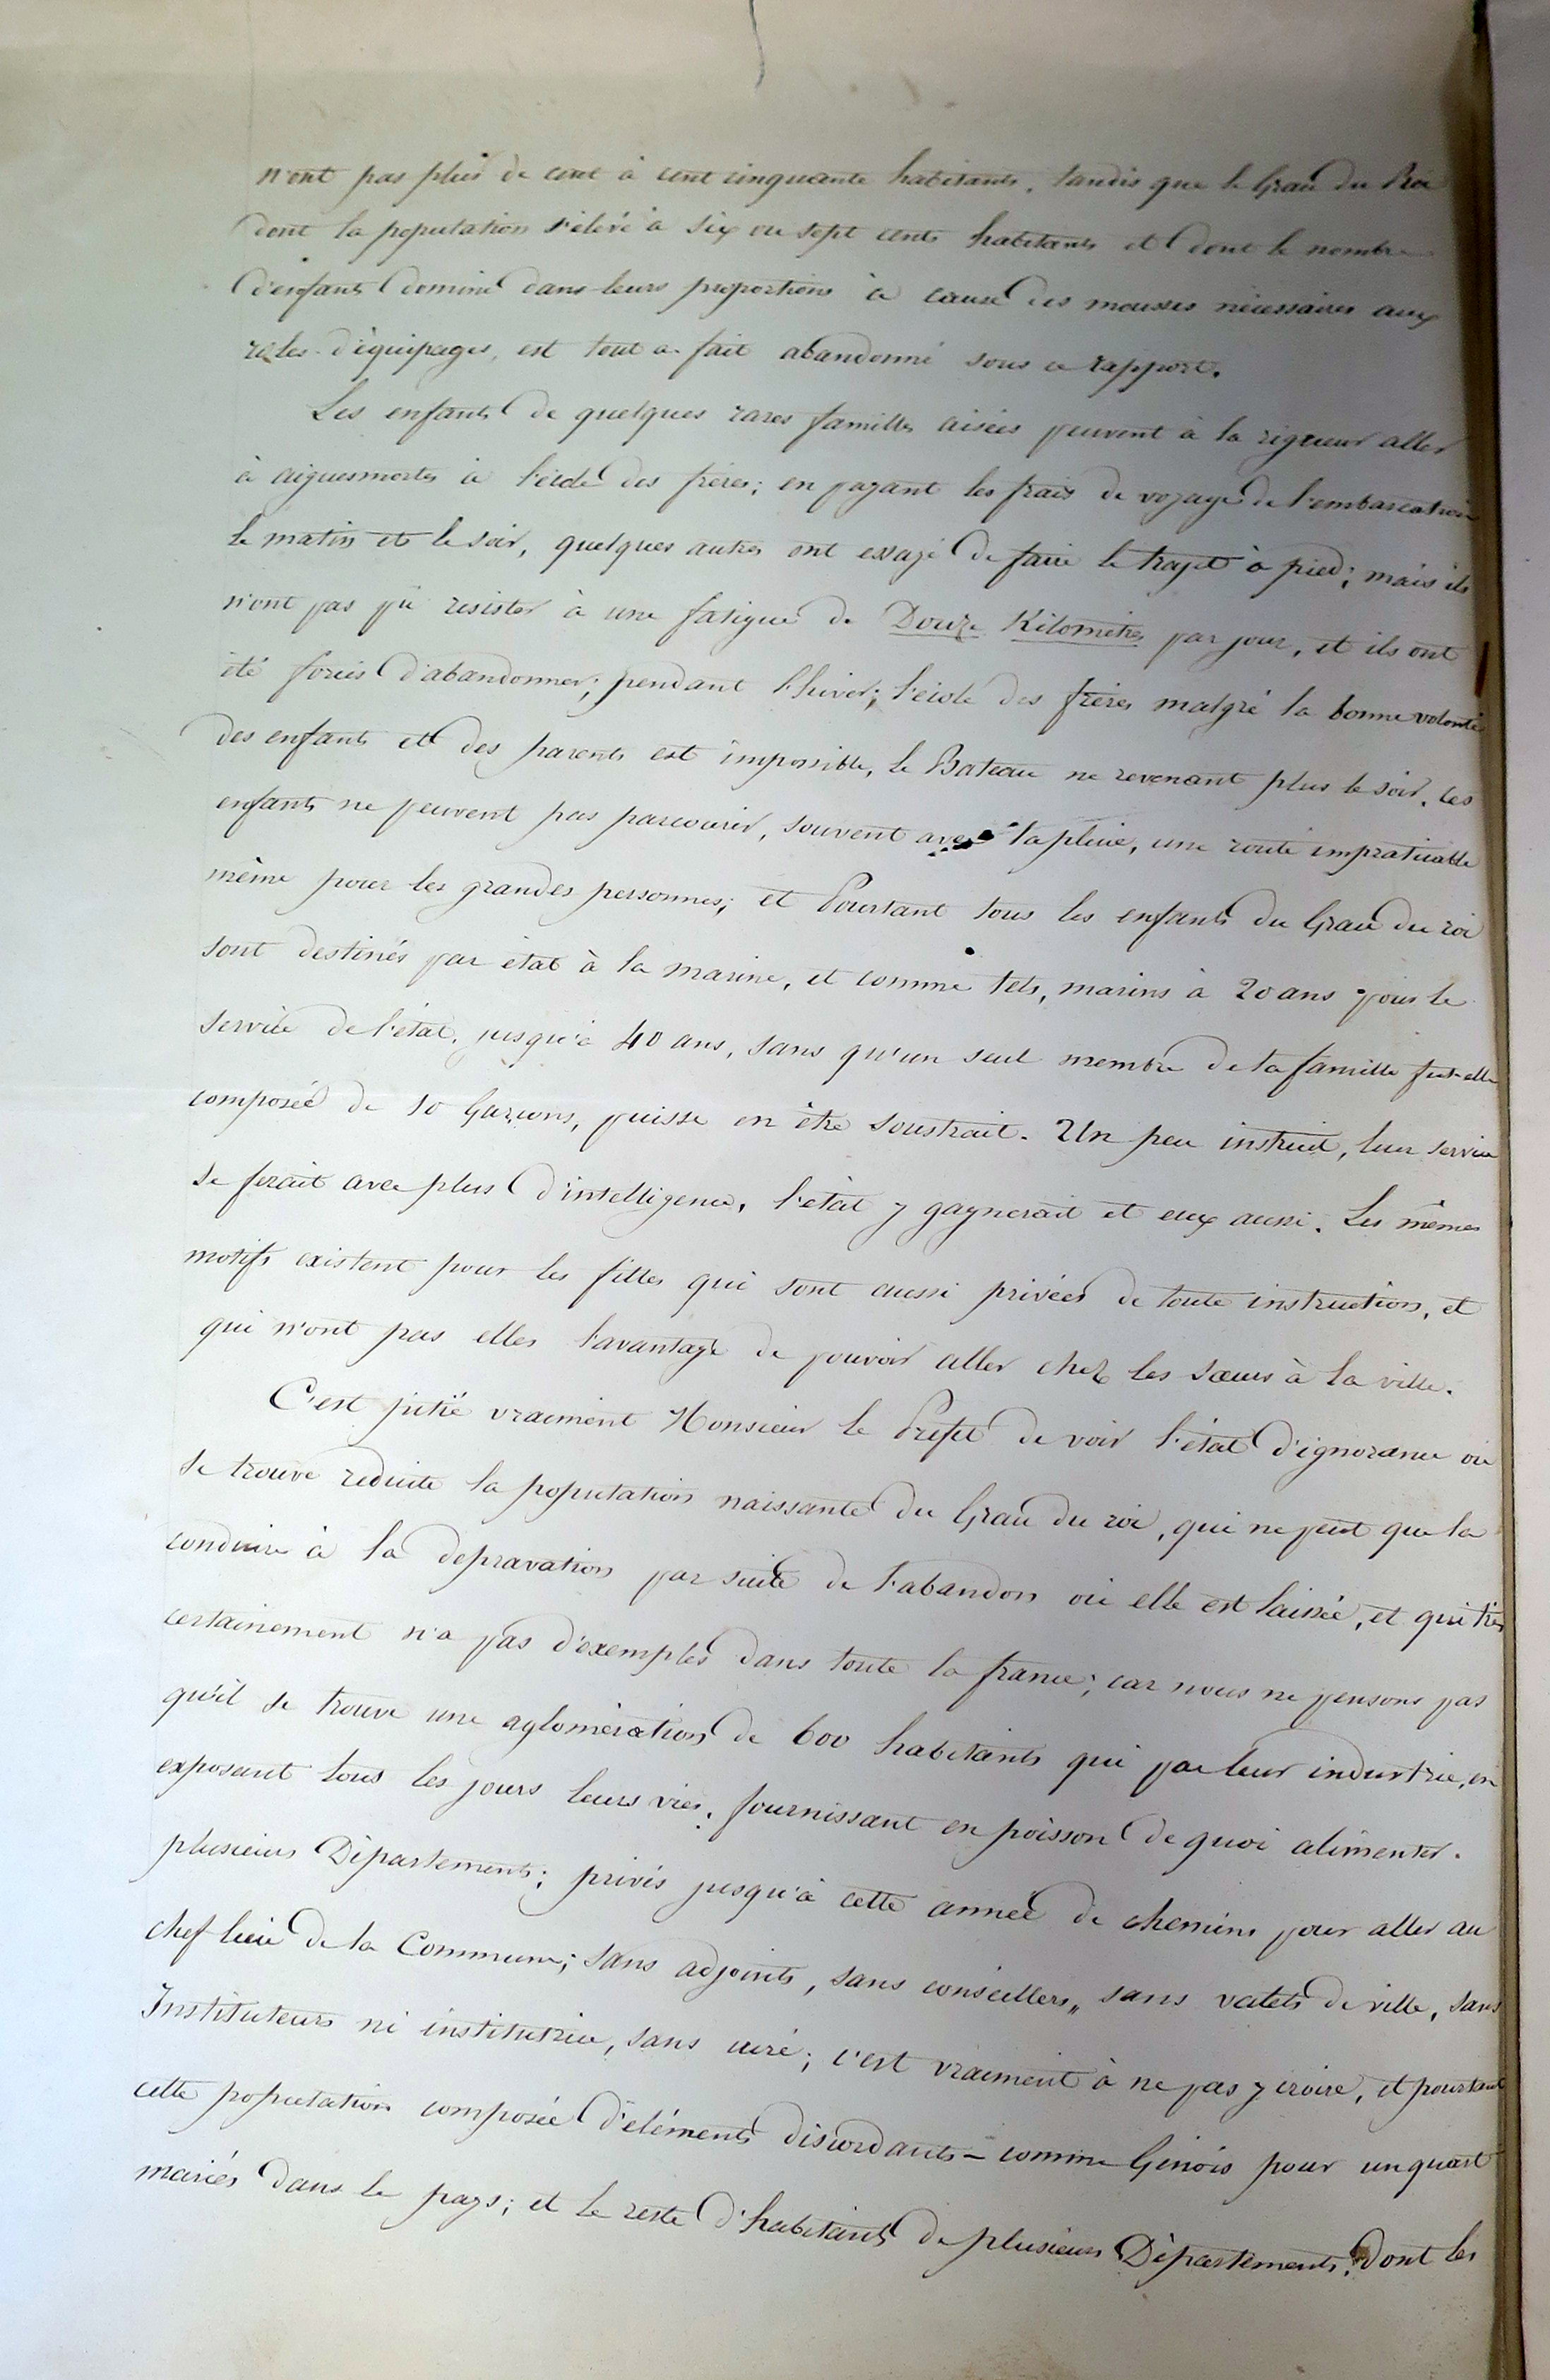 n'ont pas plus de cent à cent cinquante habitants, tandis que le Grau du Roi
dont la population s'élève à six ou sept cents habitants et dont le nombre
d'enfants domine dans leurs proportions à cause des mousses nécessaires aux
roles d'équipages, est tout a fait abandonné sous ce rapport.
Les enfants de quelques rares familles aisées peuvent à la rigueur aller
à aiguesmortes à l'école des frères; en payant les frais de voyage de l'embarcation
le matin et le soir, quelques autres ont essayé de faire le trajet à pied; mais ils
n'ont pas pû resister à une fatigue de Douze Kilomètres par jour, et ils ont
été forcés d'abandonner; pendant l'hiver; l'école des frères malgré la bonne volonté
des enfants et des parents est impossible, le Bateau ne revenant plus le soir, les
enfants ne peuvent pas parcourir, souvent avec la pluie, une route impraticable
même pour les grandes personnes; et Pourtant tous les enfants du Grau du roi
sont destinés par état à la marine, et comme tels, marins à 20 ans pour le
service de l'état, jusqu'à 40 ans, sans qu'un seul membre de la famille fut-elle
composée de 10 Garçons, puisse en être soustrait. Un peu instruit, leur service
se ferait avec plus d'intelligence, l'état y gagnerait et eux aussi. Les mêmes
motifs existent pour les filles qui sont aussi privées de toute instruction, et
qui n'ont pas elles l'avantage de pouvoir aller chez les sœurs à la ville.
C'est pitié vraiment Monsieur le Préfet de voir l'état d'ignorance où
se trouve reduite la population naissante du Grau du roi, qui ne peut que la
conduire à la depravation par suite de l'abandon où elle est laissée, et qui très
certainement n'a pas d'exemples dans toute la france; car nous ne pensons pas
qu'il se trouve une aglomération de 600 habitants qui par leur industrie, en
exposant tous les jours leurs vies, fournissant en poisson de quoi alimenter.
plusieurs Départements; privés jusqu'à cette année de chemins pour aller au
chef lieu de la Commune; sans adjoints, sans conseillers,, sans valets de ville, sans
Instituteurs ni institutrice, sans curé; c'est vraiment à ne pas y croire, et pourtant
cette population composée d'éléments discordants - comme Génois pour un quart
mariés dans le pays; et le reste d'habitants de plusieurs Départements. dont les